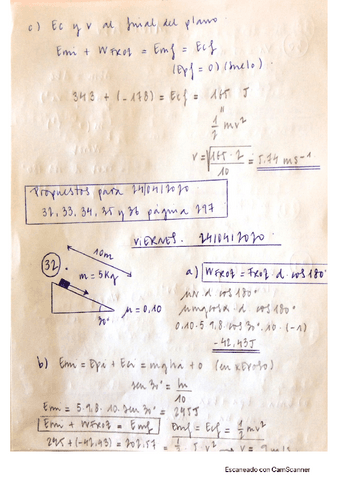 c) Ec y v al final del plano
Emi + WFROZ = Emf = Ecf
(Epf = 0) (suelo)
343 + (-178) = Ecf = 165 J
"
1/2 mv²
v = √(165 · 2 / 10) = 5.74 ms⁻¹
Propuestos para 24/04/2020
32, 33, 34, 35 y 36 página 297
VIERNES. 24/04/2020
32
10m
m = 5Kg
μ = 0,10
30°
a) WFROZ = FROZ · d · cos 180°
μN · d cos 180°
μmg cos α · d cos 180°
0,10 · 5 · 9,8 · cos 30° · 10 · (-1)
-42,43J
b) Em = Epi + Eci = mgha + 0 (en reposo)
sen 30° = h/10
Em = 5 · 9,8 · 10 · sen 30° = 245 J
Emi + WFROZ = Emf
Emf = Ecf = 1/2 mv²
245 + (-42,43) = 202,57
Escaneado con CamScanner